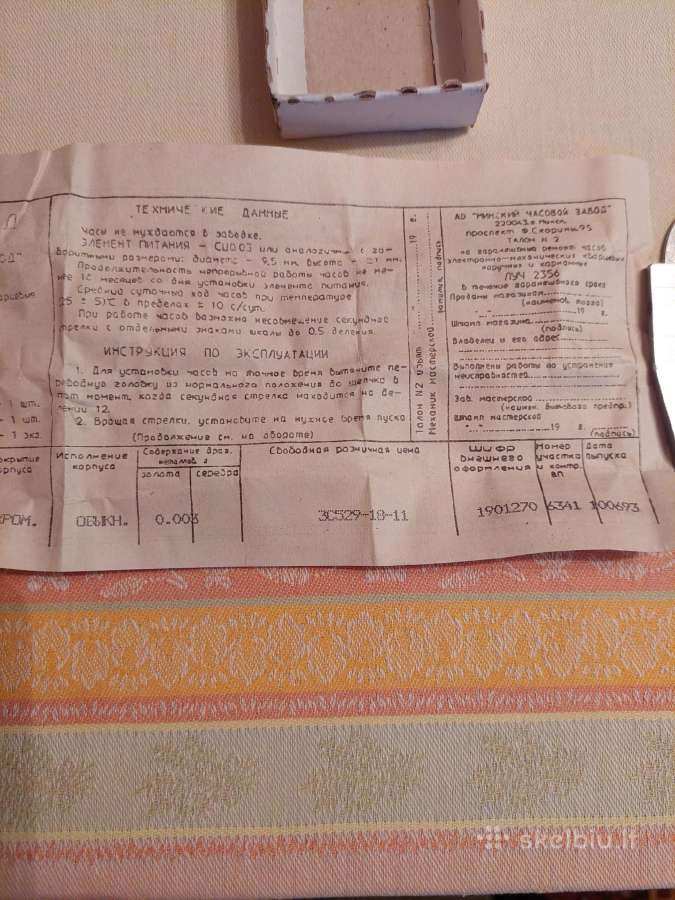 ТЕХНИЧЕСКИЕ ДАННЫЕ
Часы не нуждаются в заводке.
ЭЛЕМЕНТ ПИТАНИЯ – СЦ0,03 или аналогичн с га-
баритными размерами: диаметр – 9,5 мм, высота –
Продолжительность непрерывной работы часов не ме-
нее 12 месяцев со дня установки элемента питания.
Средний суточный ход часов при температуре
25 ± 5)°С в пределах ± 10 с/сут.
При работе часов возможно несовмещение секундной
стрелки с отдельными знаками шкалы до 0,5 деления.
ИНСТРУКЦИЯ ПО ЭКСПЛУАТАЦИИ
1. Для установки часов на точное время вытяните пе-
реводную головку из нормального положения до щелчка в
тот момент, когда секундная стрелка находится на де-
лении 12.
2. Вращая стрелки, установите на нужное время пуска
(Продолжение см. на обороте)
Талон N2 изъят 19 г.
Механик мастерской
фамилия, подпись
АО "МИНСКИЙ ЧАСОВОЙ ЗАВОД"
220043, г. Минск,
проспект Ф.Скорины, 95
ТАЛОН N 2
на гарантийный ремонт часов
электронно-механических кварцевых
наручных и карманных
ЛУЧ 2356
в течение гарантийного срока
Проданы магазином
(наименов. торга)
19 г.
Штамп магазина
(подпись)
Владелец и его адрес
Выполнены работы по устранению
неисправностей
Зав. мастерской
(наимен. бытового предпр.)
Штамп мастерской
19 г.
(подпись)
1 шт.
1 шт.
1 экз.
окрытие
корпуса
Исполнение
корпуса
Содержание драг.
металлов, г
золота
серебра
Свободная розничная цена
Шифр
внешнего
оформления
Номер
участка
и контр.
ВП
Дата
выпуска
ХРОМ.
ОБЫКН.
0.003
3С529-18-11
1901270
6341
100693
skelbiu.lt